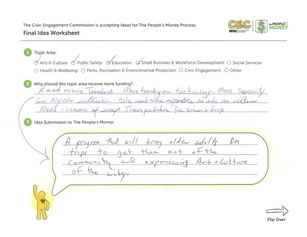 The Civic Engagement Commission is accepting Ideas for The People's Money Process.
Final Idea Worksheet
CEC
NYC
THE PEOPLE'S MONEY
1 Topic Area:
Arts & Culture Public Safety Education Small Business & Workforce Development Social Services
Health & Wellbeing Parks, Recreation & Environmental Protection Civic Engagement Other
2 Why should this topic area receive more funding?
Need more Teachers. More hands on technology. More security
for NYCHA We need the to our culture.
Need means of Transportation for
3 Idea Submission to The People's Money:
A program that will bring older adults on
trips to get them out of the
community and experiencing Art & Culture
of the city.
Flip Over